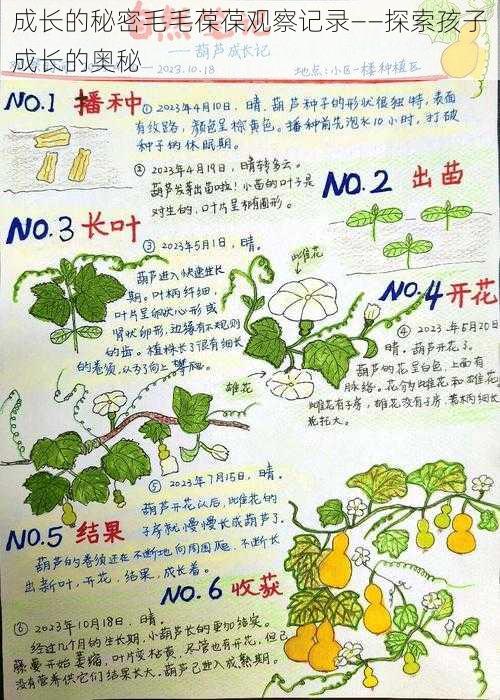 成长的秘密毛毛葆葆观察记录——探索孩子
成长的奥秘
自然笔记
——葫芦成长记
2023.10.18
地点：小区一楼种植区
NO.1 播种
① 2023年4月10日，晴，葫芦种子的形状很独特，表面
有纹路，颜色呈棕黄色。播种前先泡水10小时，打破
种子的休眠期。
② 2023年4月19日，晴转多云。
葫芦发芽出苗啦！小苗的叶子是
对生的，叶片呈卵圆形。
NO.2 出苗
NO.3 长叶
③ 2023年5月1日，晴。
葫芦进入快速生长
期。叶柄纤细，
叶片呈状心形或
肾状卵形，边缘有不规则
的齿。植株长了很有细长
的卷须，以方向上攀爬。
雌花
雄花
NO.4 开花
④ 2023年5月20日
晴。葫芦开花了。
葫芦的花呈白色，上面有
脉络。花分为雌花和雄花
雌花有子房，雄花没有子房，花柄细长
花托大。
⑤ 2023年7月15日，晴。
葫芦开花以后，雌花的
子房就慢慢长成葫芦了。
NO.5 结果
葫芦的卷须还在不断地向周围爬，不断长
出新叶，开花，结果，成长着。
NO.6 收获
⑥ 2023年10月18日，晴。
经过几个月的生长期，小葫芦长的更加结实。
藤蔓开始萎缩，叶片变枯黄，尽管也有开花，但已
没有营养供它们结果长大。葫芦已进入成熟期。